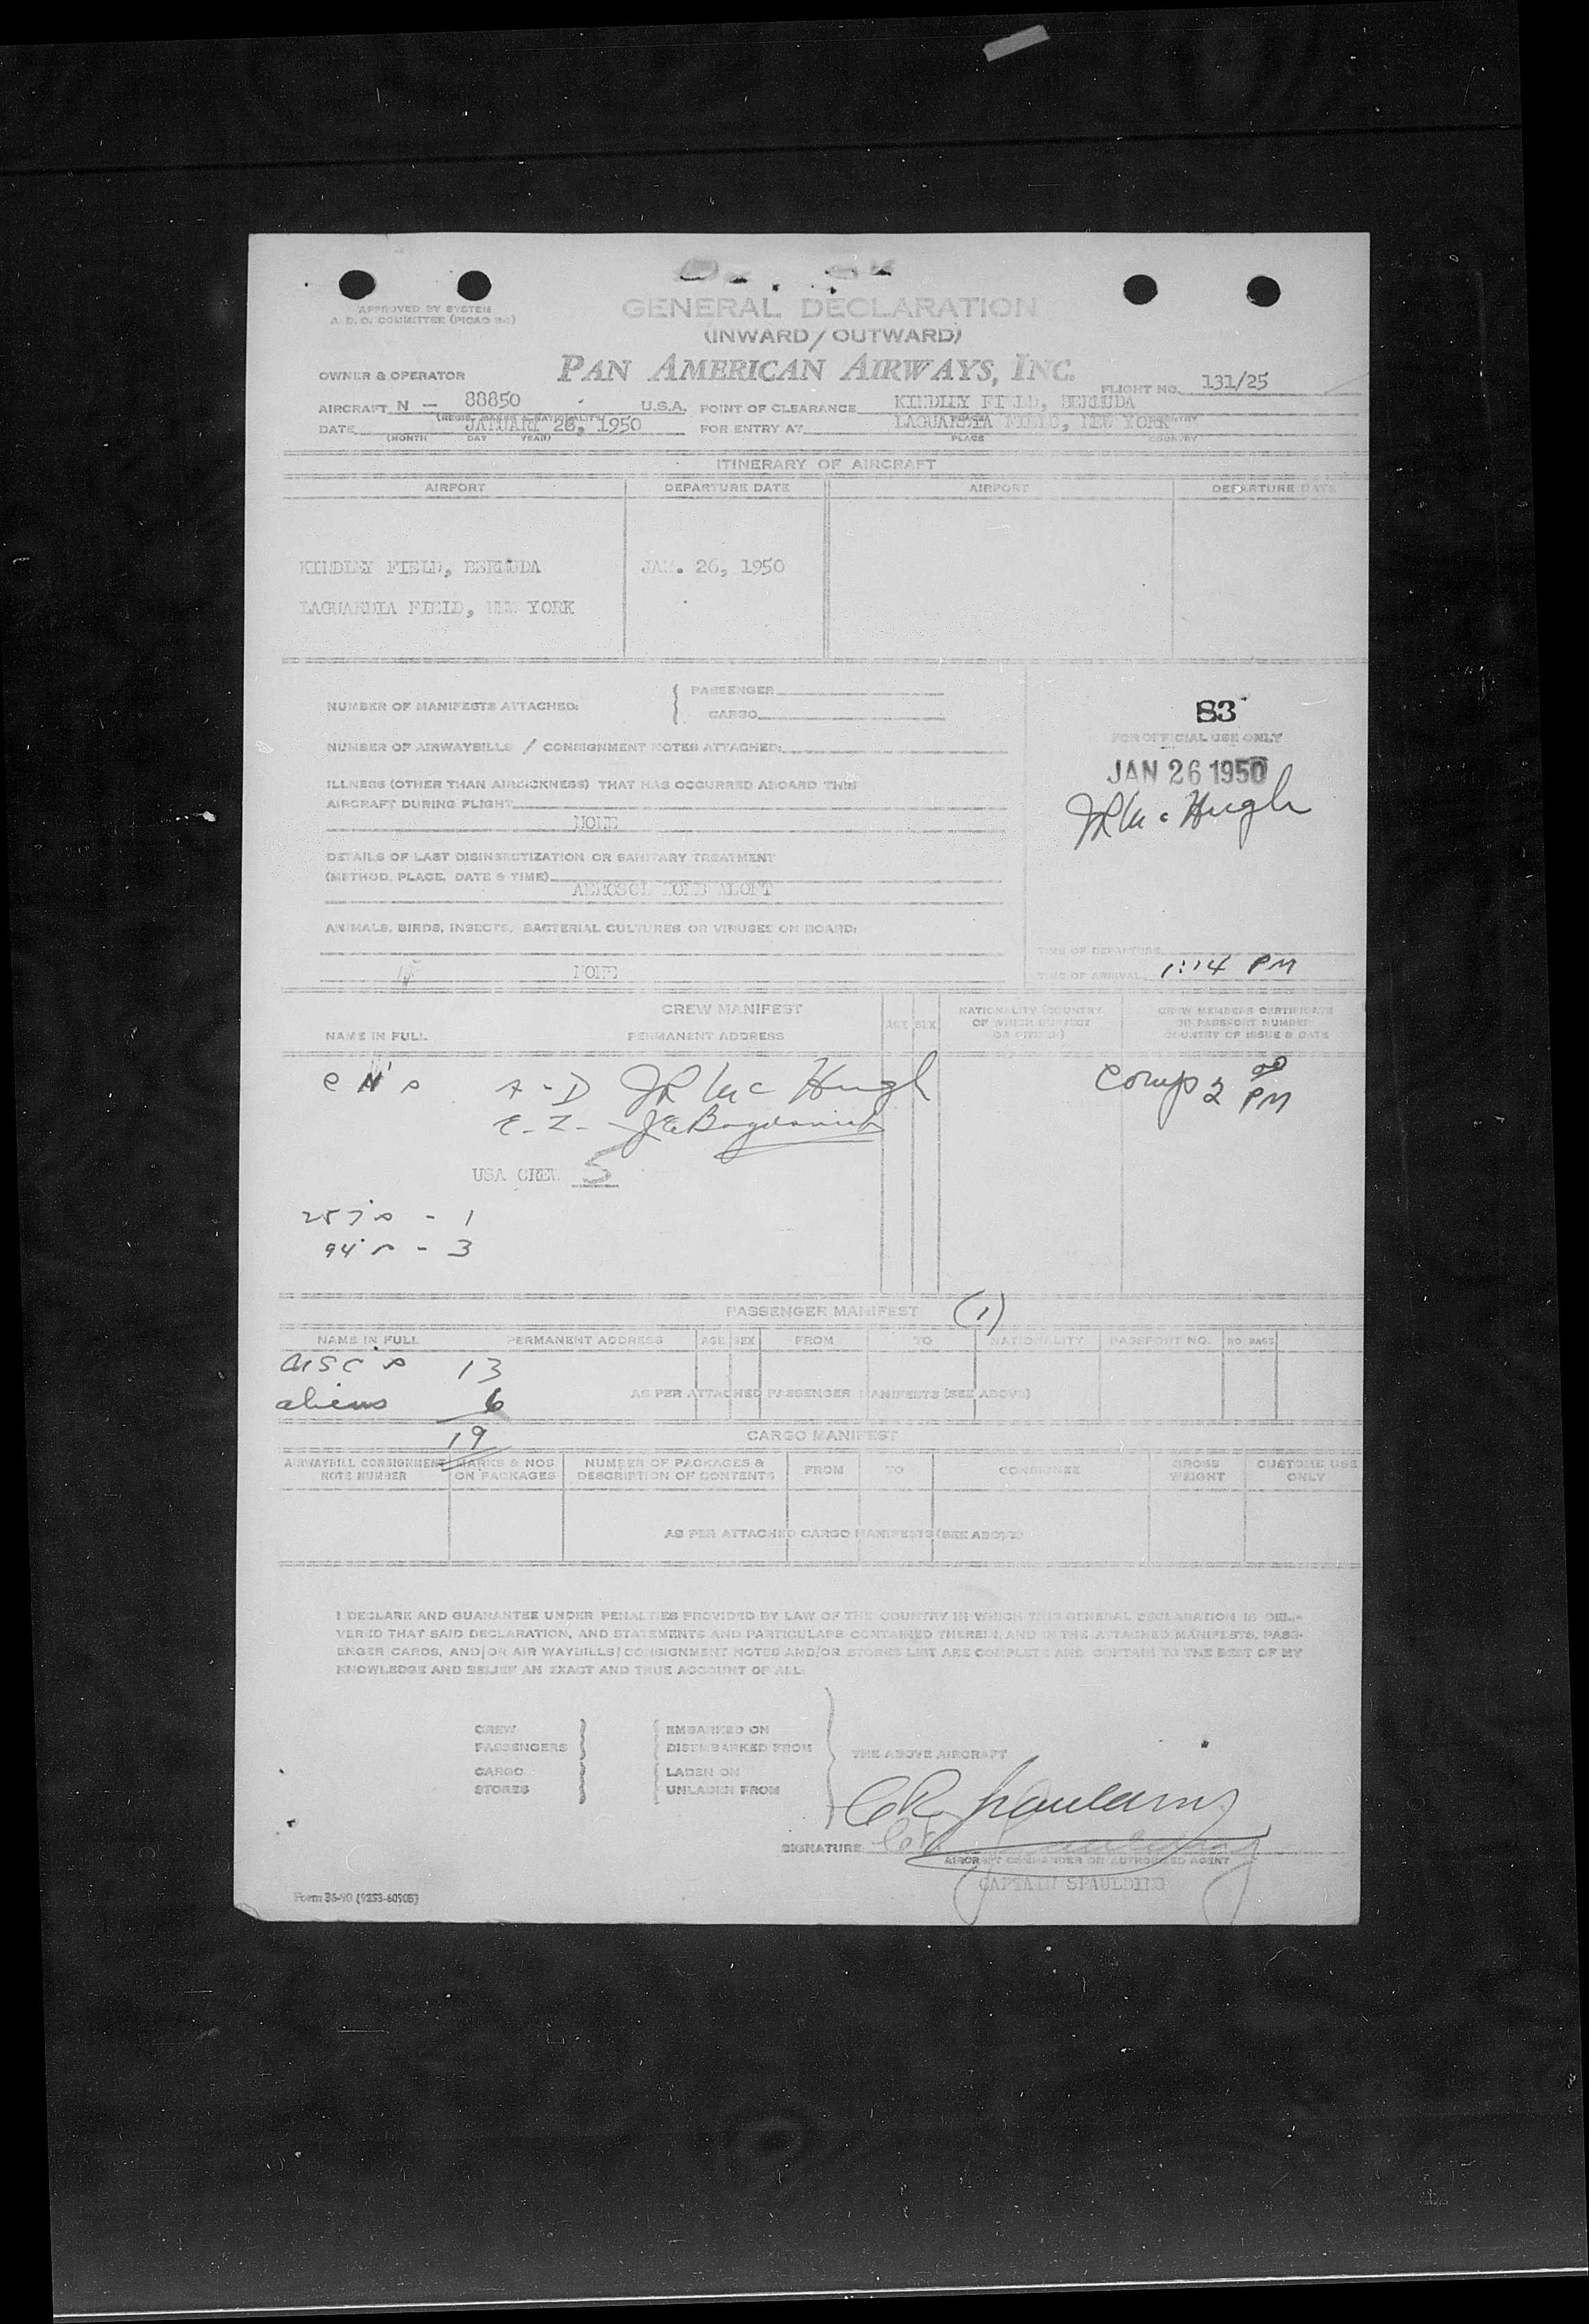 APPROVED BY SYSTEM
A. D. C. COMMITTEE (PICAO
GENERAL DECLARATION
(INWARD / OUTWARD)
OWNER & OPERATOR PAN AMERICAN AIRWAYS, INC. FLIGHT NO. 131/25
AIRCRAFT N - 88850 U.S.A. POINT OF CLEARANCE KINDLEY FIELD, BERMUDA
DATE JANUARY 26, 1950 FOR ENTRY AT LAGUARDIA FIELD, NEW YORK
(MONTH DAY YEAR) PLACE COUNTRY
ITINERARY OF AIRCRAFT
AIRPORT DEPARTURE DATE AIRPORT DEPARTURE DATE
KINDLEY FIELD, BERMUDA JAN. 26, 1950
LAGUARDIA FIELD, NEW YORK
NUMBER OF MANIFESTS ATTACHED: PASSENGER
CARGO
83
FOR OFFICIAL USE ONLY
NUMBER OF AIRWAYBILLS / CONSIGNMENT NOTES ATTACHED:
JAN 26 1950
JR Mc Hugh
ILLNESS (OTHER THAN AIRSICKNESS) THAT HAS OCCURRED ABOARD THIS
AIRCRAFT DURING FLIGHT
NONE
DETAILS OF LAST DISINSECTIZATION OR SANITARY TREATMENT
(METHOD, PLACE, DATE & TIME)
AEROSOL BOMB ALOFT
ANIMALS, BIRDS, INSECTS, BACTERIAL CULTURES OR VIRUSES ON BOARD:
NONE
TIME OF DEPARTURE
TIME OF ARRIVAL 1:14 PM
CREW MANIFEST
NAME IN FULL PERMANENT ADDRESS AGE SEX NATIONALITY (COUNTRY OF WHICH SUBJECT OR CITIZEN) CREW MEMBERS CERTIFICATE OR PASSPORT NUMBER COUNTRY OF ISSUE & DATE
A - D JR Mc Hugh Comp 2 00 PM
E. I. - JG Bogdanich
USA CREW 5
257's - 1
94's - 3
PASSENGER MANIFEST (1)
NAME IN FULL PERMANENT ADDRESS AGE SEX FROM TO NATIONALITY PASSPORT NO. NO. BAGS
USC's 13
aliens 6
AS PER ATTACHED PASSENGER MANIFESTS (SEE ABOVE)
19
CARGO MANIFEST
AIRWAYBILL CONSIGNMENT NOTE NUMBER MARKS & NOS ON PACKAGES NUMBER OF PACKAGES & DESCRIPTION OF CONTENTS FROM TO CONSIGNEE GROSS WEIGHT CUSTOMS USE ONLY
AS PER ATTACHED CARGO MANIFESTS (SEE ABOVE)
I DECLARE AND GUARANTEE UNDER PENALTIES PROVIDED BY LAW OF THE COUNTRY IN WHICH THIS GENERAL DECLARATION IS DELI-
VERED THAT SAID DECLARATION, AND STATEMENTS AND PARTICULARS CONTAINED THEREIN, AND IN THE ATTACHED MANIFESTS, PASS-
ENGER CARDS, AND/OR AIR WAYBILLS/CONSIGNMENT NOTES AND/OR STORES LIST ARE COMPLETE AND CONTAIN TO THE BEST OF MY
KNOWLEDGE AND BELIEF AN EXACT AND TRUE ACCOUNT OF ALL:
CREW EMBARKED ON
PASSENGERS DISEMBARKED FROM
THE ABOVE AIRCRAFT
CARGO LADEN ON
STORES UNLADEN FROM
CR Spaulding
SIGNATURE
AIRCRAFT COMMANDER OR AUTHORIZED AGENT
CAPTAIN SPAULDING
Form 36-90 (9253-60905)